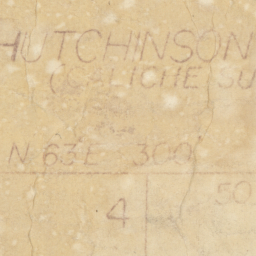 HUTCHINSON
(CALICHE SU
N 63 E 300'
50
4